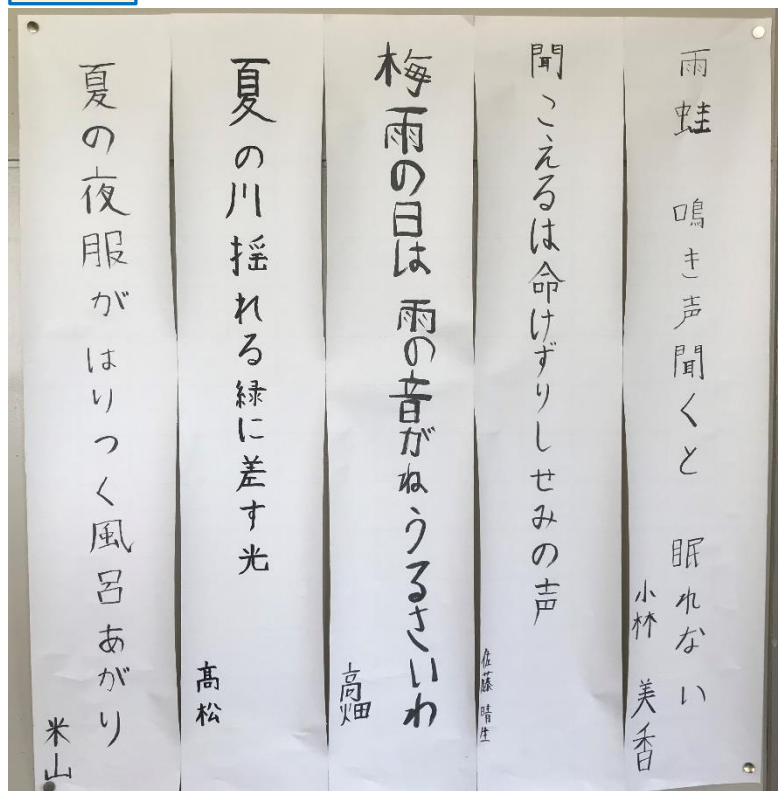 雨蛙 鳴き声聞くと 眠れない
小林 美香
聞こえるは命けずりしせみの声
佐藤 晴生
梅雨の日は 雨の音がねうるさいわ
高畑
夏の川揺れる緑に差す光
髙松
夏の夜服がはりつく風呂あがり
米山